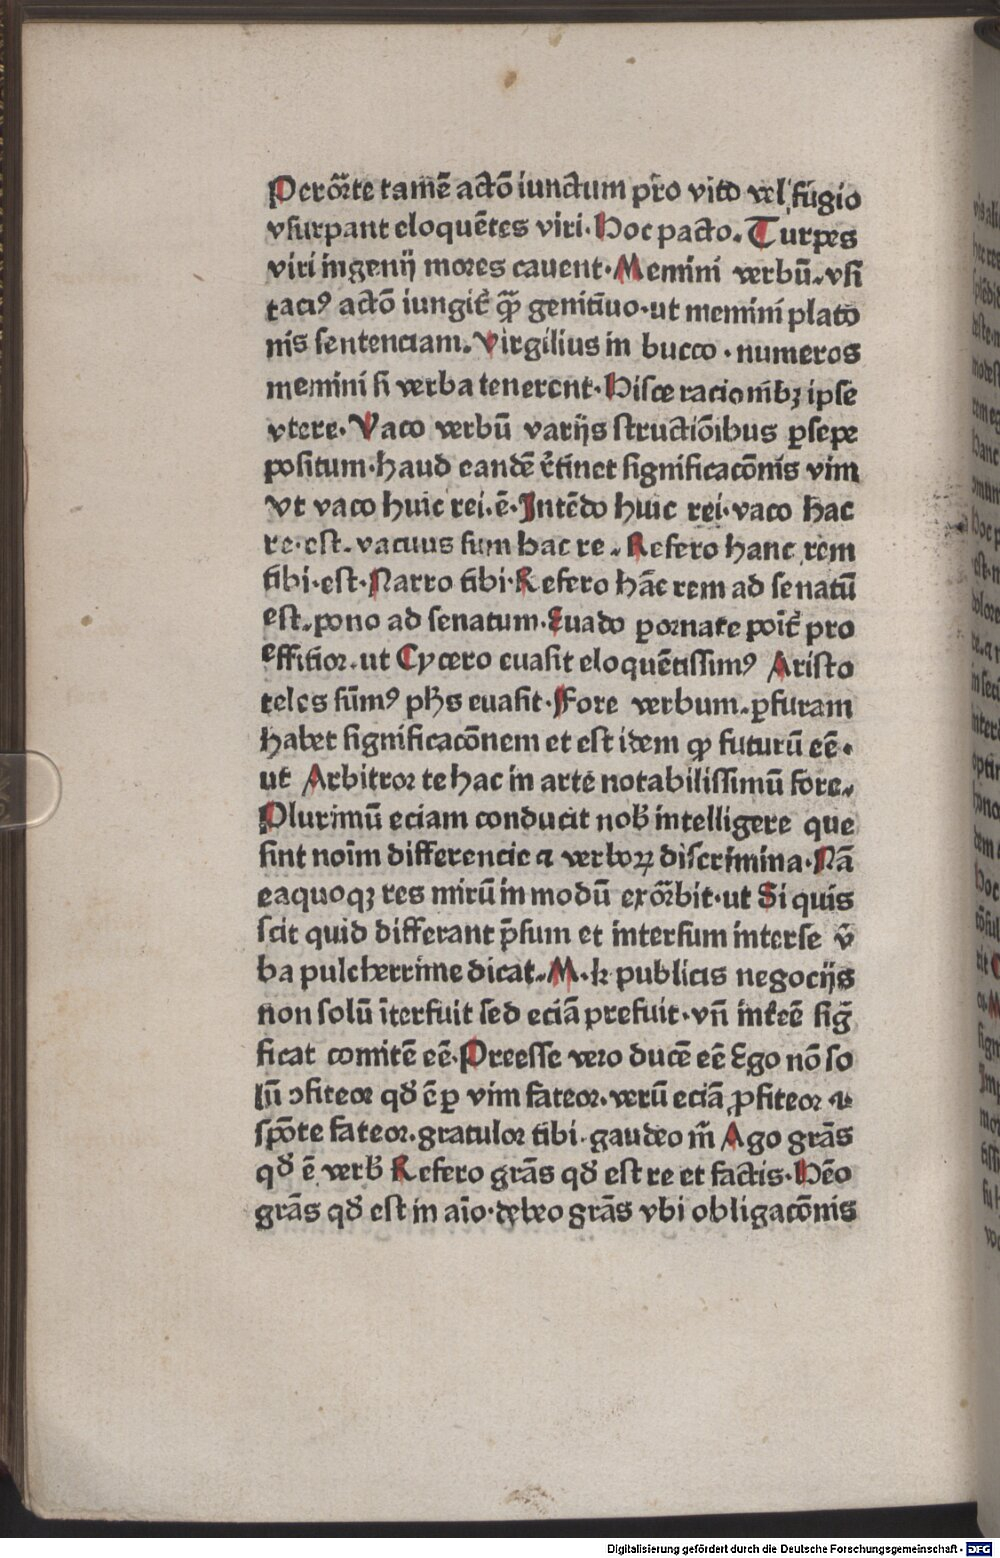 Perõrte tamē actõ iunctum p̄ro vito vel fugio
vsurpant eloquētes viri· Hoc pacto. Turpes
viri ingenij mores cauent· Memini verbū. vsi
taciꝰ actõ iungit̄ ꝙ̄ genitiuo· ut memini plato
nis sentenciam. Virgilius in bucco · numeros
memini si verba tenerent· Hisce racionibꝫ ipse
vtere· Vaco verbū varijs structiõibus ꝑsepe
positum· haud eandē ↄ̄tinet significacõnis vim
Vt vaco huic rei· ē· Intēdo huic rei· vaco hac
re· est. vacuus sum hac re. Refero hanc rem
tibi· est· Narro tibi· Refero hāc rem ad senatū
est. pono ad senatum· Euado ꝑornate poit̄ pro
effitior. ut Cycero euasit eloquētissimꝰ Aristo
teles sūmꝰ ph̄s euasit· Fore verbum. ꝑfuram
habet significacõnem et est idem ꝙ futurū eē·
ut Arbitror te hac in arte notabilissimū fore.
Plurimū eciam conducit nob̄ intelligere que
sint noīm differencie ⁊ verboꝝ discrimina· Nā
eaquoqꝫ res mirū in modū exõrbit· ut Si quis
scit quid differant p̄sum et intersum interse v̄
ba pulcherrime dicat. M. k publicis negocijs
non solū īterfuit sed eciā prefuit· vn̄ int̄eē siḡ
ficat comitē eē. Preesse vero ducē eē Ego nõ so
lū ↄfiteor qđ ē ꝑ vim fateor. verū eciā ꝓfiteor ⁊
spõte fateor. gratulor tibi· gaudeo m̄ Ago grās
qđ ē verb̄ Refero grās qđ est re et factis· Hēo
grās qđ est in aīo· debeo grās vbi obligacõnis
Digitalisierung gefördert durch die Deutsche Forschungsgemeinschaft · DFG